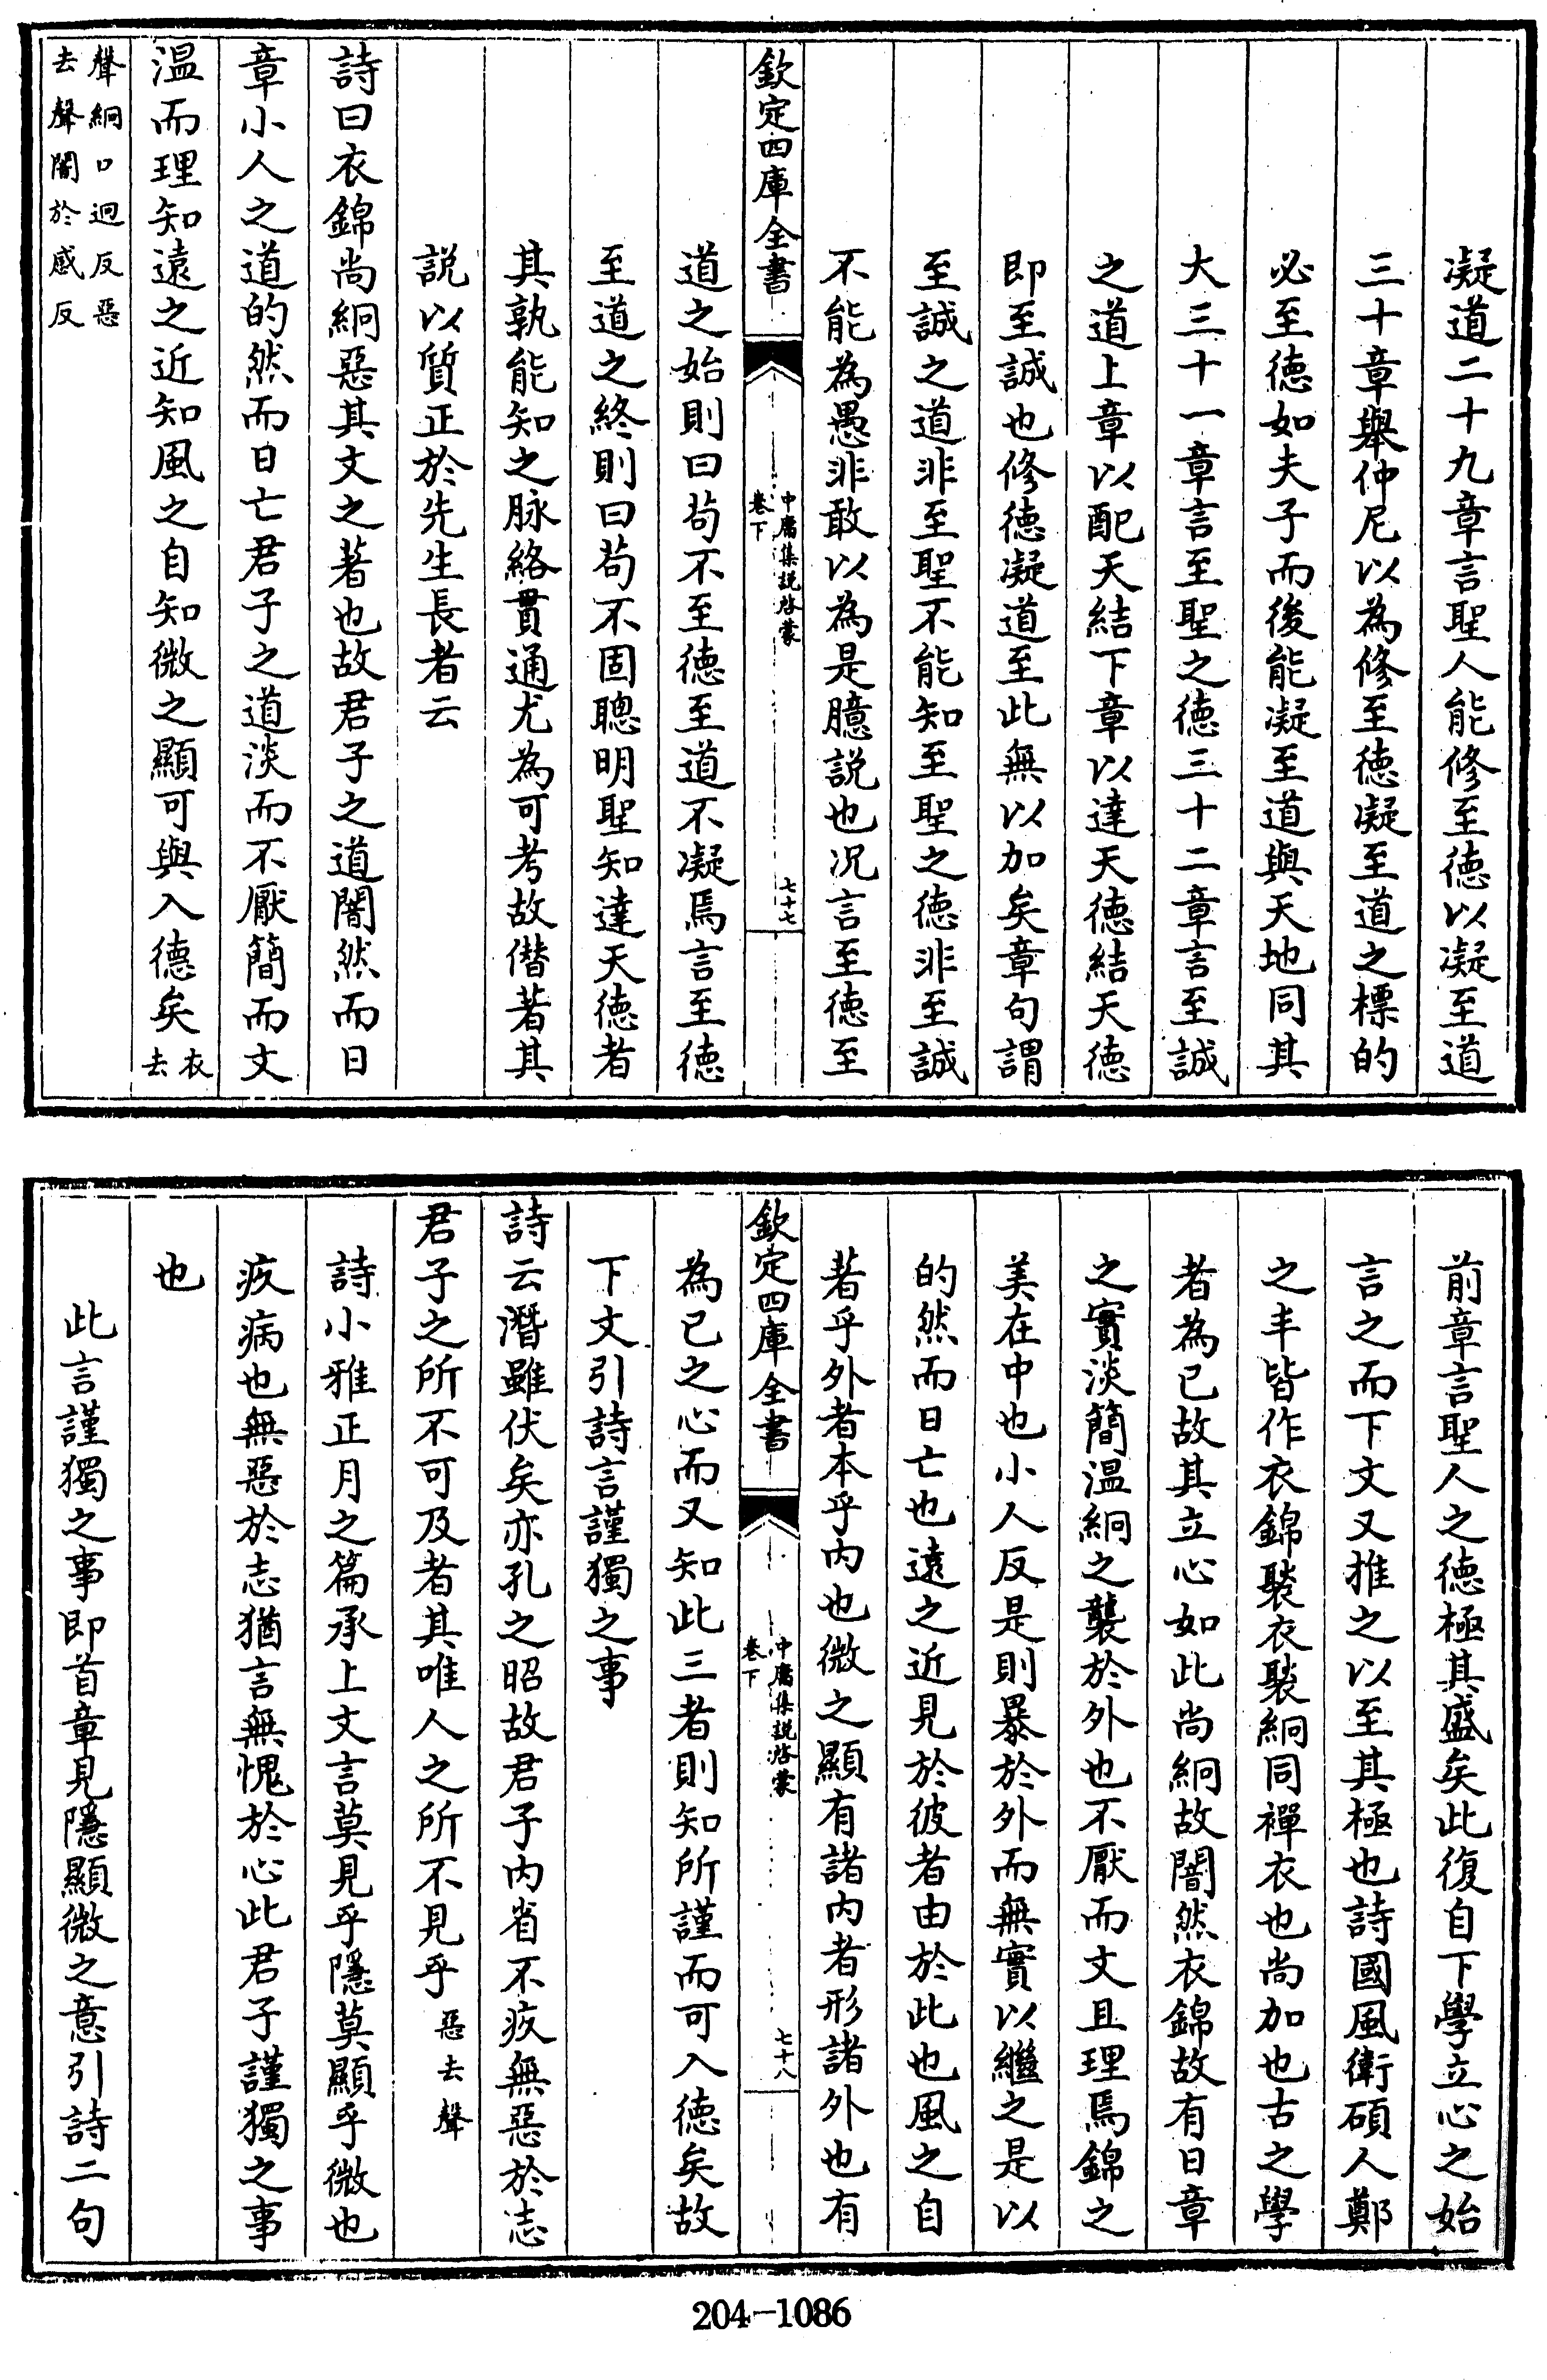 凝道二十九章言聖人能修至德以凝至道
三十章舉仲尼以為修至德凝至道之標的
必至德如夫子而後能凝至道與天地同其
大三十一章言至聖之德三十二章言至誠
之道上章以配天結下章以達天德結天德
即至誠也修德凝道至此無以加矣章句謂
至誠之道非至聖不能知至聖之德非至誠
不能為愚非敢以為是臆説也况言至德至
欽定四庫全書
中庸集説啓蒙
卷下
七十七
道之始則曰苟不至德至道不凝焉言至德
至道之終則曰苟不固聰明聖知達天德者
其孰能知之脉絡貫通尤為可考故僣著其
説以質正於先生長者云
詩曰衣錦尚絅惡其文之著也故君子之道闇然而日
章小人之道的然而日亡君子之道淡而不厭簡而文
温而理知遠之近知風之自知微之顯可與入德矣衣去
聲絅口迥反惡
去聲闇於感反
前章言聖人之德極其盛矣此復自下學立心之始
言之而下文又推之以至其極也詩國風衛碩人鄭
之丰皆作衣錦褧衣褧絅同襌衣也尚加也古之學
者為已故其立心如此尚絅故闇然衣錦故有日章
之實淡簡温絅之襲於外也不厭而文且理焉錦之
美在中也小人反是則暴於外而無實以繼之是以
的然而日亡也遠之近見於彼者由於此也風之自
著乎外者本乎内也微之顯有諸内者形諸外也有
欽定四庫全書
中庸集説啓蒙
卷下
七十八
為已之心而又知此三者則知所謹而可入德矣故
下文引詩言謹獨之事
詩云潛雖伏矣亦孔之昭故君子内省不疚無惡於志
君子之所不可及者其唯人之所不見乎惡去聲
詩小雅正月之篇承上文言莫見乎隱莫顯乎微也
疚病也無惡於志猶言無愧於心此君子謹獨之事
也
此言謹獨之事即首章見隱顯微之意引詩二句
204-1086